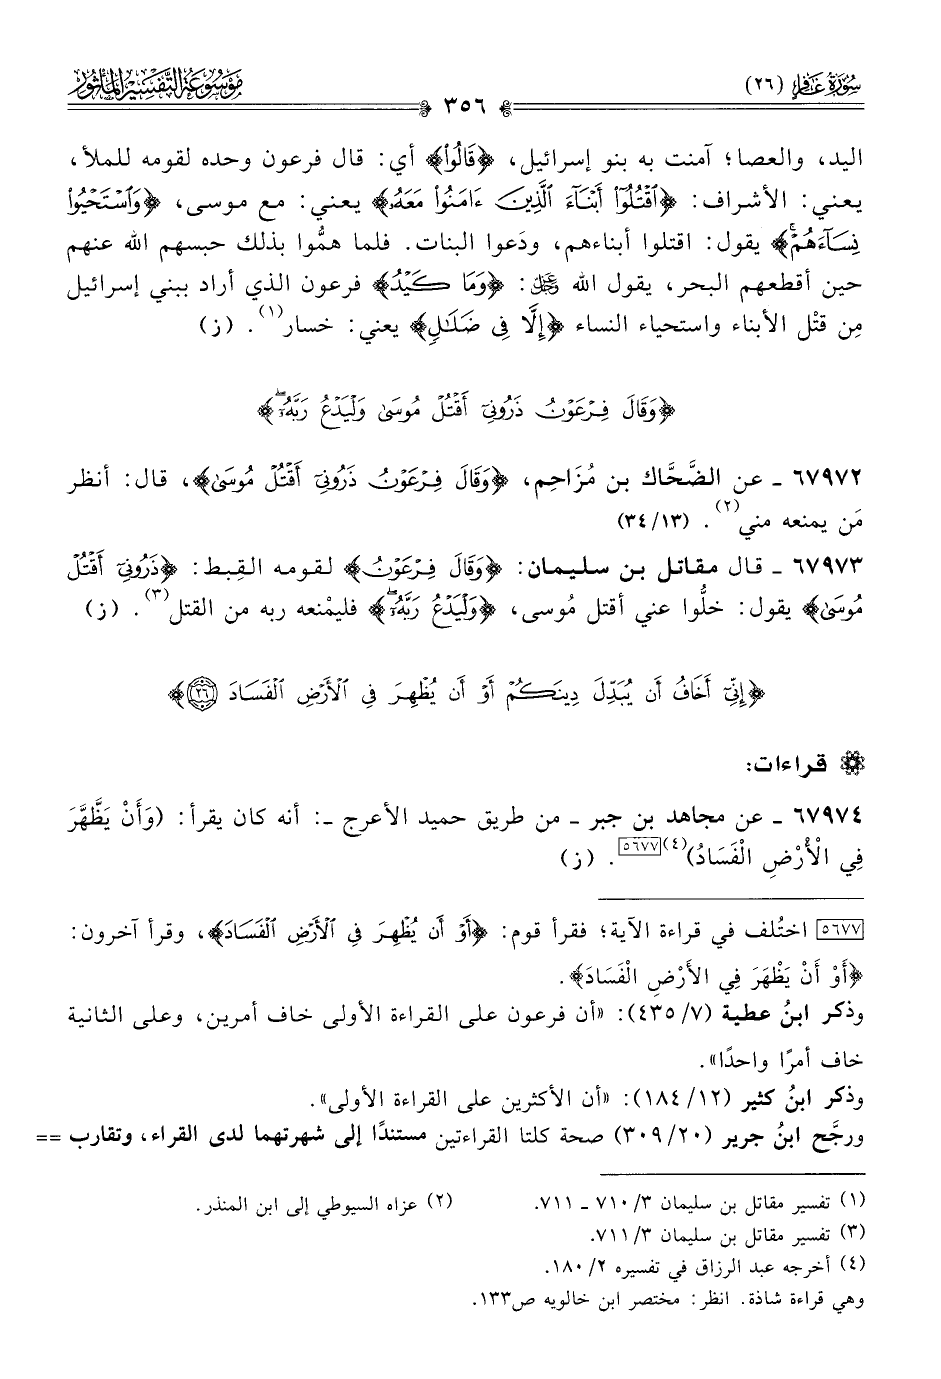 سُورَةُ غَافِرٍ (٢٦)
٣٥٦
مَوْسُوعَةُ التَّفْسِيرِ المَأْثُورِ
اليد، والعصا؛ آمنت به بنو إسرائيل، ﴿قَالُوا۟﴾ أي: قال فرعون وحده لقومه للملأ،
يعني: الأشراف: ﴿ٱقْتُلُوٓا۟ أَبْنَآءَ ٱلَّذِينَ ءَامَنُوا۟ مَعَهُۥ﴾ يعني: مع موسى، ﴿وَٱسْتَحْيُوا۟
نِسَآءَهُمْ ۚ﴾ يقول: اقتلوا أبناءهم، ودَعوا البنات. فلما همُّوا بذلك حبسهم الله عنهم
حين أقطعهم البحر، يقول الله ﷿: ﴿وَمَا كَيْدُ﴾ فرعون الذي أراد ببني إسرائيل
مِن قتْل الأبناء واستحياء النساء ﴿إِلَّا فِى ضَلَٰلٍ﴾ يعني: خسار(١). (ز)
﴿وَقَالَ فِرْعَوْنُ ذَرُونِىٓ أَقْتُلْ مُوسَىٰ وَلْيَدْعُ رَبَّهُۥٓ ۖ﴾
٦٧٩٧٢ ـ عن الضَّحَّاك بن مُزَاحِم، ﴿وَقَالَ فِرْعَوْنُ ذَرُونِىٓ أَقْتُلْ مُوسَىٰ﴾، قال: أنظر
مَن يمنعه مني(٢). (١٣/ ٣٤)
٦٧٩٧٣ ـ قال مقاتل بن سليمان: ﴿وَقَالَ فِرْعَوْنُ﴾ لقومه القِبط: ﴿ذَرُونِىٓ أَقْتُلْ
مُوسَىٰ﴾ يقول: خلُّوا عني أقتل مُوسى، ﴿وَلْيَدْعُ رَبَّهُۥٓ ۖ﴾ فليمْنعه ربه من القتل(٣). (ز)
﴿إِنِّىٓ أَخَافُ أَن يُبَدِّلَ دِينَكُمْ أَوْ أَن يُظْهِرَ فِى ٱلْأَرْضِ ٱلْفَسَادَ ۝٢٦﴾
قراءات:
٦٧٩٧٤ ـ عن مجاهد بن جبر ـ من طريق حميد الأعرج ـ: أنه كان يقرأ: (وَأَنْ يَظَّهَّرَ
فِي الْأَرْضِ الْفَسَادُ)(٤)[٥٦٧٧]. (ز)
[٥٦٧٧] اختُلف في قراءة الآية؛ فقرأ قوم: ﴿أَوْ أَن يُظْهِرَ فِى ٱلْأَرْضِ ٱلْفَسَادَ﴾، وقرأ آخرون:
﴿أَوْ أَنْ يَظْهَرَ فِي الأَرْضِ الْفَسَادَ﴾.
وذكر ابنُ عطية (٧/ ٤٣٥): «أن فرعون على القراءة الأولى خاف أمرين، وعلى الثانية
خاف أمرًا واحدًا».
وذكر ابنُ كثير (١٢/ ١٨٤): «أن الأكثرين على القراءة الأولى».
ورجَّح ابنُ جرير (٢٠/ ٣٠٩) صحة كلتا القراءتين مستندًا إلى شهرتهما لدى القراء، وتقارب ==
(١) تفسير مقاتل بن سليمان ٣/ ٧١٠ ـ ٧١١. (٢) عزاه السيوطي إلى ابن المنذر.
(٣) تفسير مقاتل بن سليمان ٣/ ٧١١.
(٤) أخرجه عبد الرزاق في تفسيره ٢/ ١٨٠.
وهي قراءة شاذة. انظر: مختصر ابن خالويه ص١٣٣.